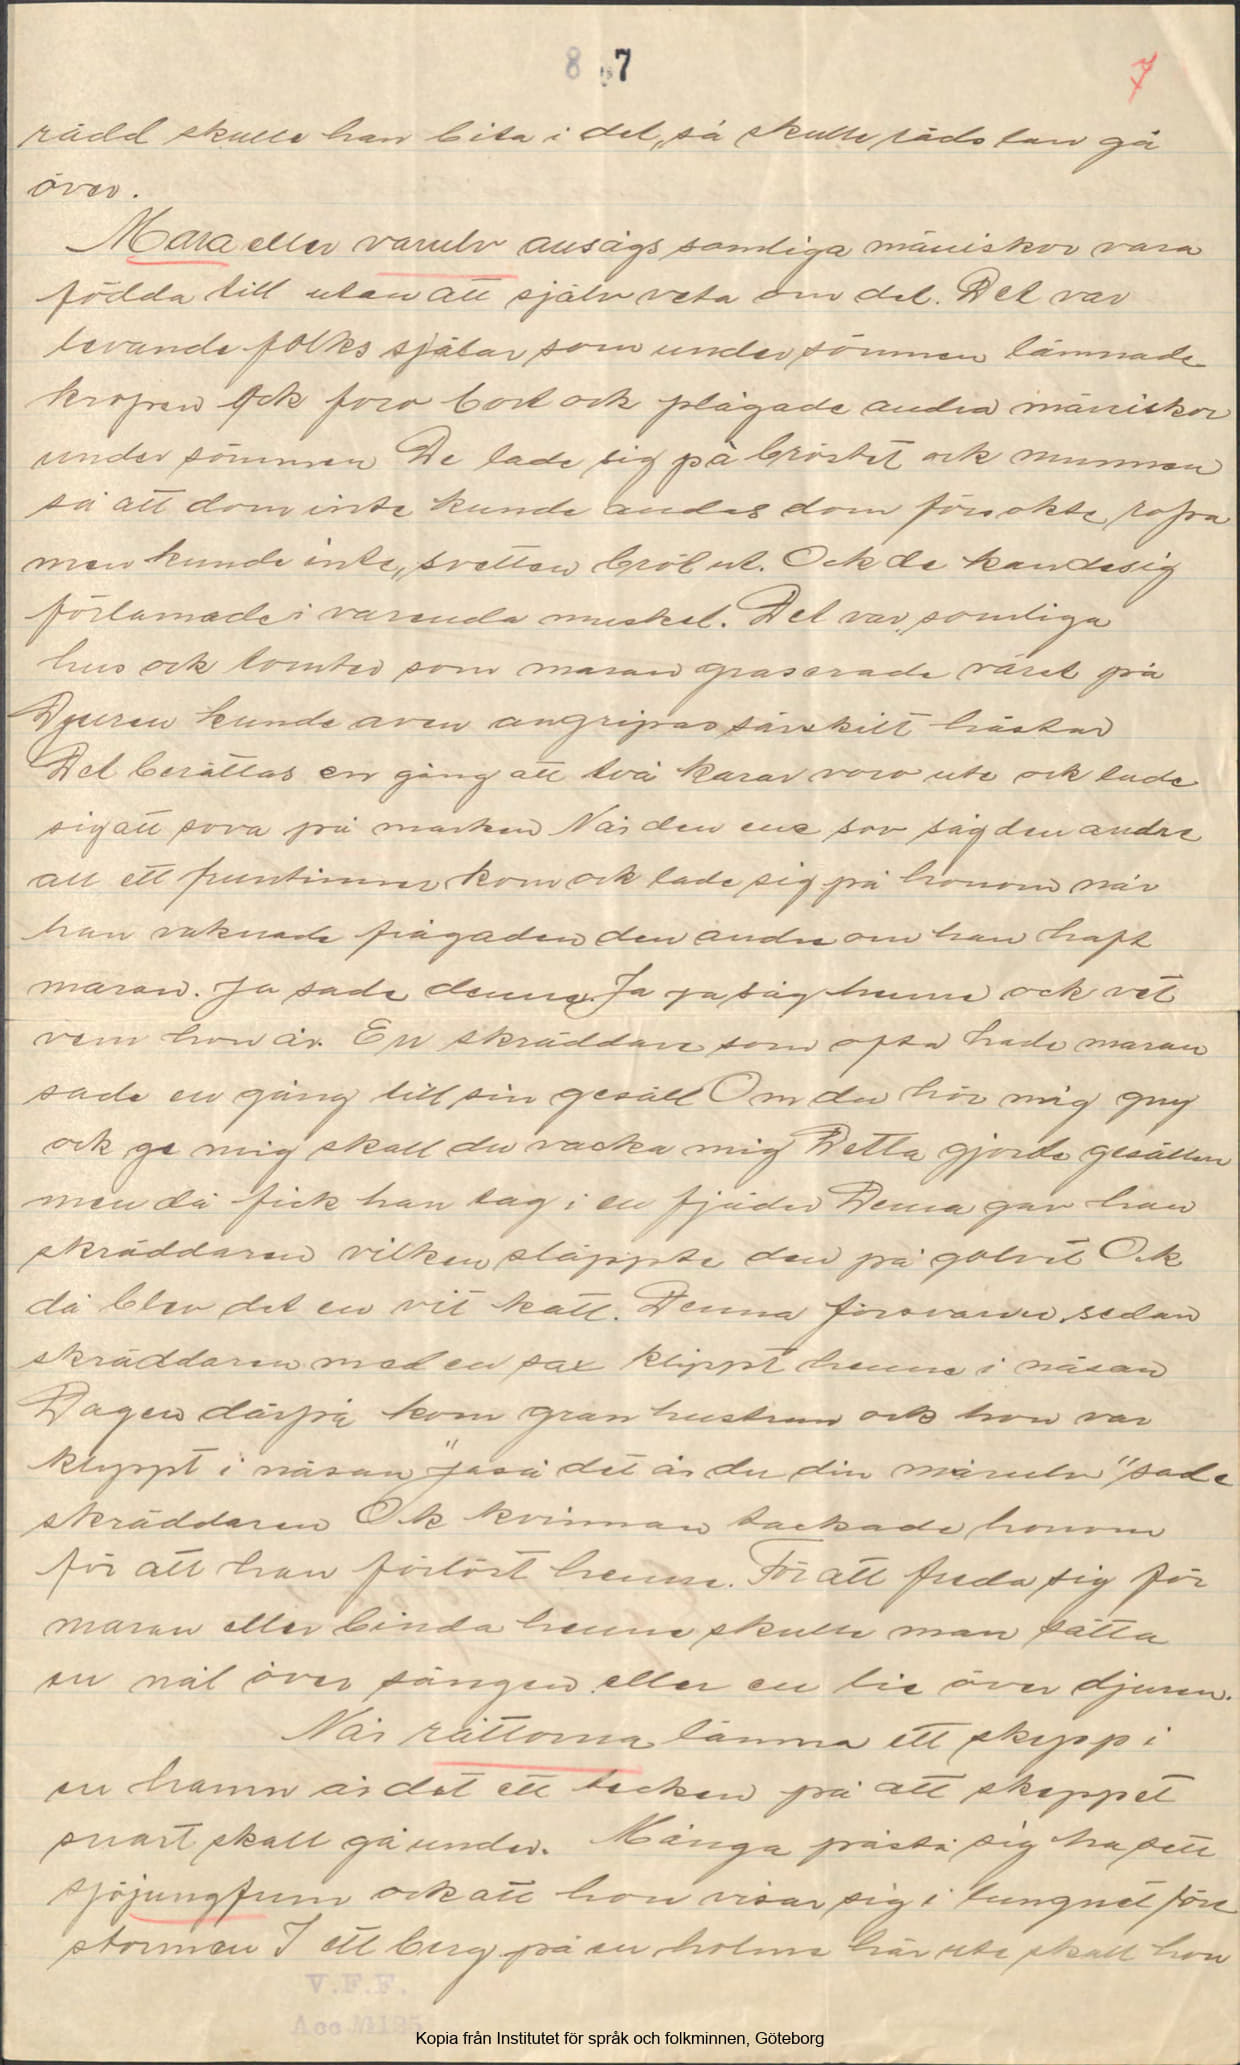 8 7
7
rädd skulle han bita i det, så skulle rädslan gå
över.
Mara eller varulv ansågs somliga mäniskor vara
födda till utan att själv veta om det. Det var
levande folks själar som under sömnen lämnade
kropen Ock foro bort ock plågade andra mäniskor
under sömnen De lade sig på bröstet ock munnen
så att dom inte kunde andas dom försökte ropa
men kunde inte, svetten bröt ut. Ock de kande sig
förlamade i varenda muskel. Det var somliga
hus ock tomter som maran graserade värst på
Djuren kunde även angripas särskilt hästar
Det berättas en gång att två karar voro ute ock lade
sig att sova på marken När den ene sov såg den andre
att ett fruntimmer kom ock lade sig på honom när
han vaknade frågaden den andre om han haft
maran. Ja sade denne. Ja ja såg henne ock vet
vem hon är. En skräddare som ofta hade maran
sade en gång till sin gesäll Om du hör mig gny
ock ge mig skall du väcka mig Detta gjorde gesällen
men då fick han tag i en fjäder Denna gav han
skräddaren vilken släppte den på golvet Ock
då blev det en vit katt. Denna försvann sedan
skräddaren med en sax klippt henne i näsan
Dagen därpå kom granhustrun ock hon var
klyppt i näsan "jaså det är du din marulv" sade
skräddaren Ock kvinnan tackade honom
för att han förlöst henne. För att freda sig för
maran eller binda henne skulle man sätta
en nål över sängen eller en lie över djuren.
När råttorna lämna ett skepp i
en hamn är det ett tecken på att skeppet
snart skall gå under. Många påstå sig ha sett
sjöjungfrun ock att hon visar sig i lungnet före
stormen I ett berg på en holme här ute skall hon
V.F.F.
Acc M125
Kopia från Institutet för språk och folkminnen, Göteborg